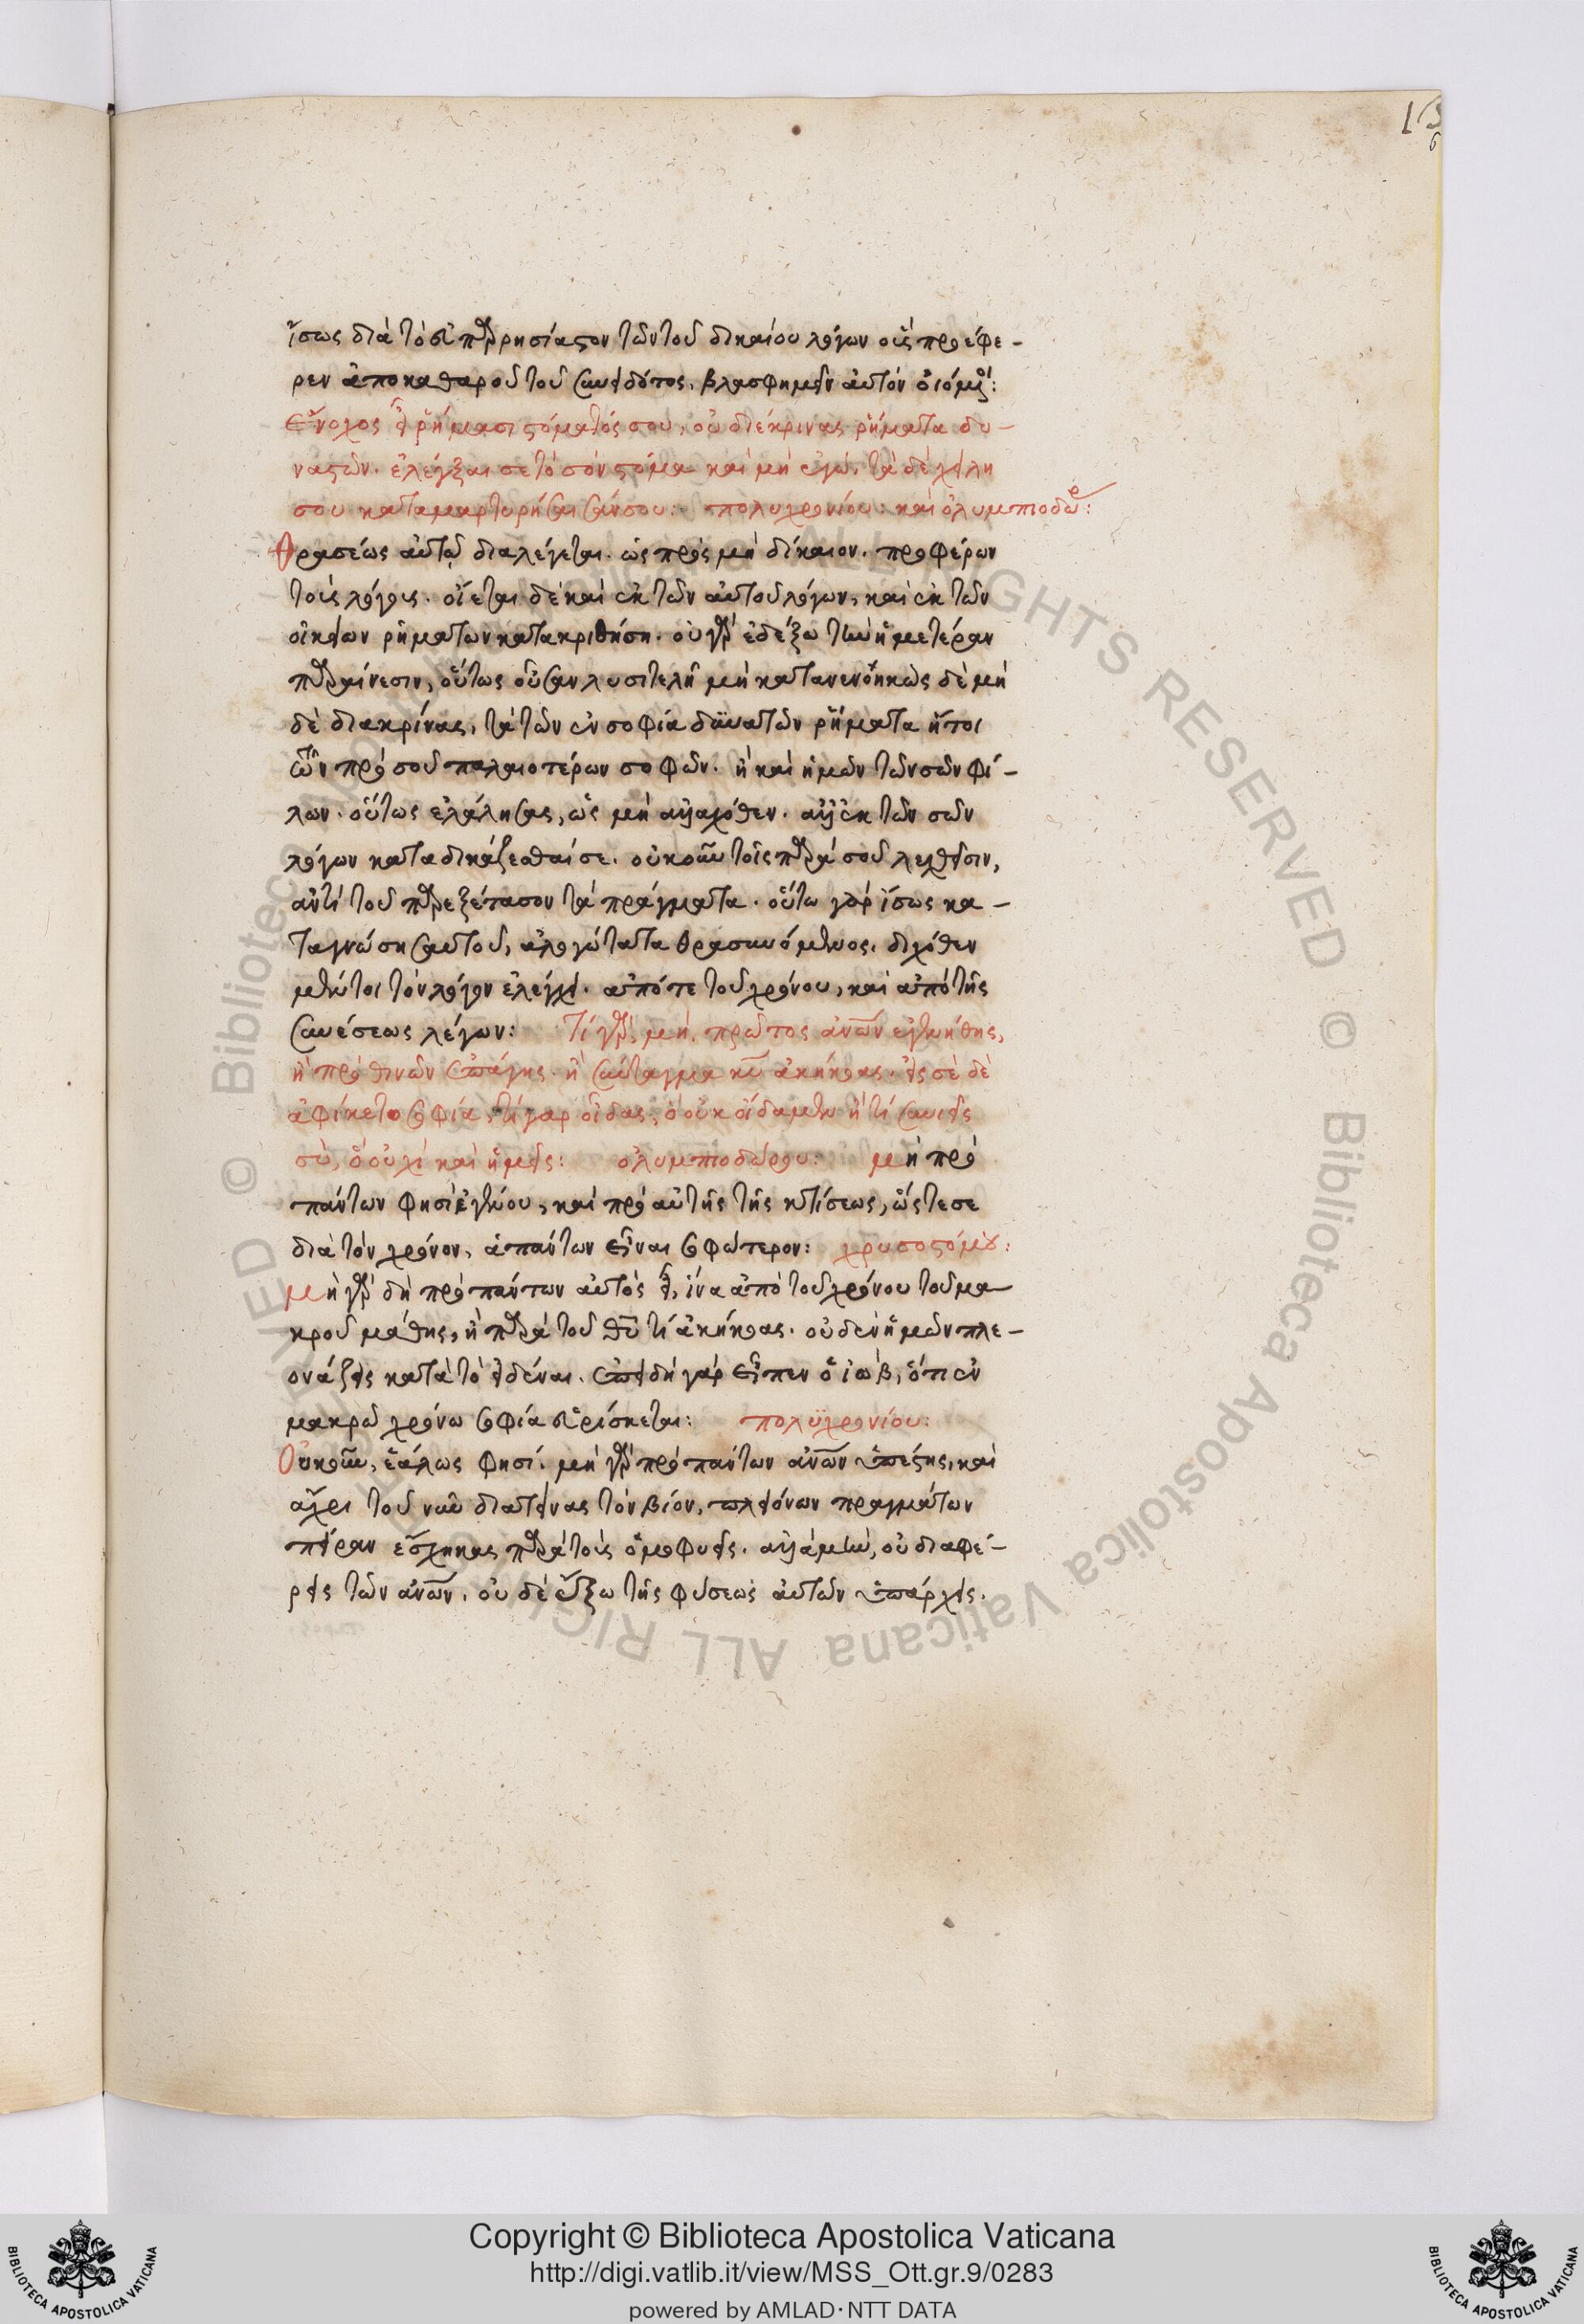 ἴσως διὰ τὸ εὐπαρρησίαστον τῶν τοῦ δικαίου λόγων οὓς προέφε-
ρεν ἀπο καθαροῦ τοῦ συνειδότος, βλασφημεῖν αὐτὸν οἰόμενοι:
ἔνοχος εἶ ῥήμασι στόματός σου, οὐ διέκρινας ῥήματα δυ-
ναστῶν. ἐλέγξαι σε τὸ σὸν στόμα καὶ μὴ ἐγώ, τὰ δὲ χείλη
σου καταμαρτυρήσαισάν σου: πολυχρονίου: καὶ ὀλυμπιοδώρ:
Θρασέως αὐτῷ διαλέγεται. ὡς πρὸς μὴ δίκαιον. προφέρων
τοὺς λόγους. οἴεται δὲ καὶ ἐκ τῶν αὐτοῦ λόγων, καὶ ἐκ τῶν
οἰκείων ῥημάτων κατακριθήση. οὐ γὰρ ἐδέξω τὴν ἡμετέραν
παραίνεσιν, οὕτως οὖσαν λυσιτελῆ μὴ κατανενοηκὼς δὲ μη
δὲ διακρίνας, τὰ τῶν ἐν σοφία δυνατῶν ῥήματα ἤτοι
τῶν πρό σου παλαιοτέρων σοφῶν. ἢ καὶ ἡμῶν τῶν σῶν φί-
λων. οὕτως ἐλάλησας, ὡς μὴ ἀλλαχόθεν. ἀλλ' ἐκ τῶν σῶν
λόγων καταδικάζεσθαί σε. οὐκοῦν τοῖς παρά σου λεχθεῖσιν,
ἀντὶ τοῦ παρεξέτασον τὰ πράγματα. οὕτω γὰρ ἴσως κα-
ταγνώση σαυτοῦ, ἀλογώτατα θρασυνόμενος. διχόθεν
μέντοι τὸν λόγον ἐλέγχει. ἀπό τε τοῦ χρόνου, καὶ ἀπὸ τῆς
συνέσεως λέγων: Τί γάρ, μὴ πρῶτος ἀνῶν ἐγενήθης,
ἢ πρὸ θινῶν ἐπάγης. ἢ σύνταγμα κυ ἀκήκοας. εἰς σὲ δὲ
ἀφίκετο σοφία, τί γὰρ οἶδας, ὃ οὐκ οἴδαμεν ἢ τί συνιεῖς
σὺ, ὃ οὐχὶ καὶ ἡμεῖς: ὀλυμπιοδώρου: μὴ πρὸ
πάντων φησὶ ἐγένου, καὶ πρὸ αὐτῆς τῆς κτίσεως, ὥστε σε
διὰ τὸν χρόνον, ἁπάντων εἶναι σοφώτερον: χρυσοστόμου:
μὴ γὰρ δὴ πρὸ πάντων αὐτὸς εἶ, ἵνα ἀπὸ τοῦ χρόνου τοῦ μα
κροῦ μάθης, ἢ παρὰ τοῦ θυ τί ἀκήκοας. οὐδὲν ἡμῶν πλε-
ονάζεις κατὰ τὸ εἰδέναι. ἐπειδὴ γὰρ εἶπεν ὁ ἰώβ, ὅτι ἐν
μακρῶ χρόνω σοφία εὑρίσκεται: πολυχρονίου:
Οὐκοῦν, ἑάλως φησί. μὴ γὰρ πρὸ πάντων ἀνῶν ὑπέστης, καὶ
ἄχρι τοῦ νῦν διατείνας τὸν βίον, πλειόνων πραγμάτων
πεῖραν ἔσχηκας παρὰ τοὺς ὁμοφυεῖς. ἀλλὰ μὴν, οὐ διαφέ-
ρεις τῶν ἀνῶν. οὐδὲ ἔξω τῆς φύσεως αὐτῶν ὑπάρχεις.
Copyright © Biblioteca Apostolica Vaticana
http://digi.vatlib.it/view/MSS_Ott.gr.9/0283
powered by AMLAD·NTT DATA